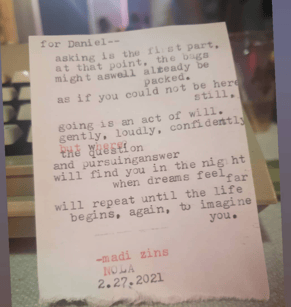 for Daniel--
asking is the first part.
at that point, the bags
might aswell already be
packed.
as if you could not be here
still.
going is an act of will.
gently, loudly, confidently
but where
the question
and pursuinganswer
will find you in the night
when dreams feel far
will repeat until the life
begins, again, to imagine
you.
-madi zins
NOLA
2.27.2021